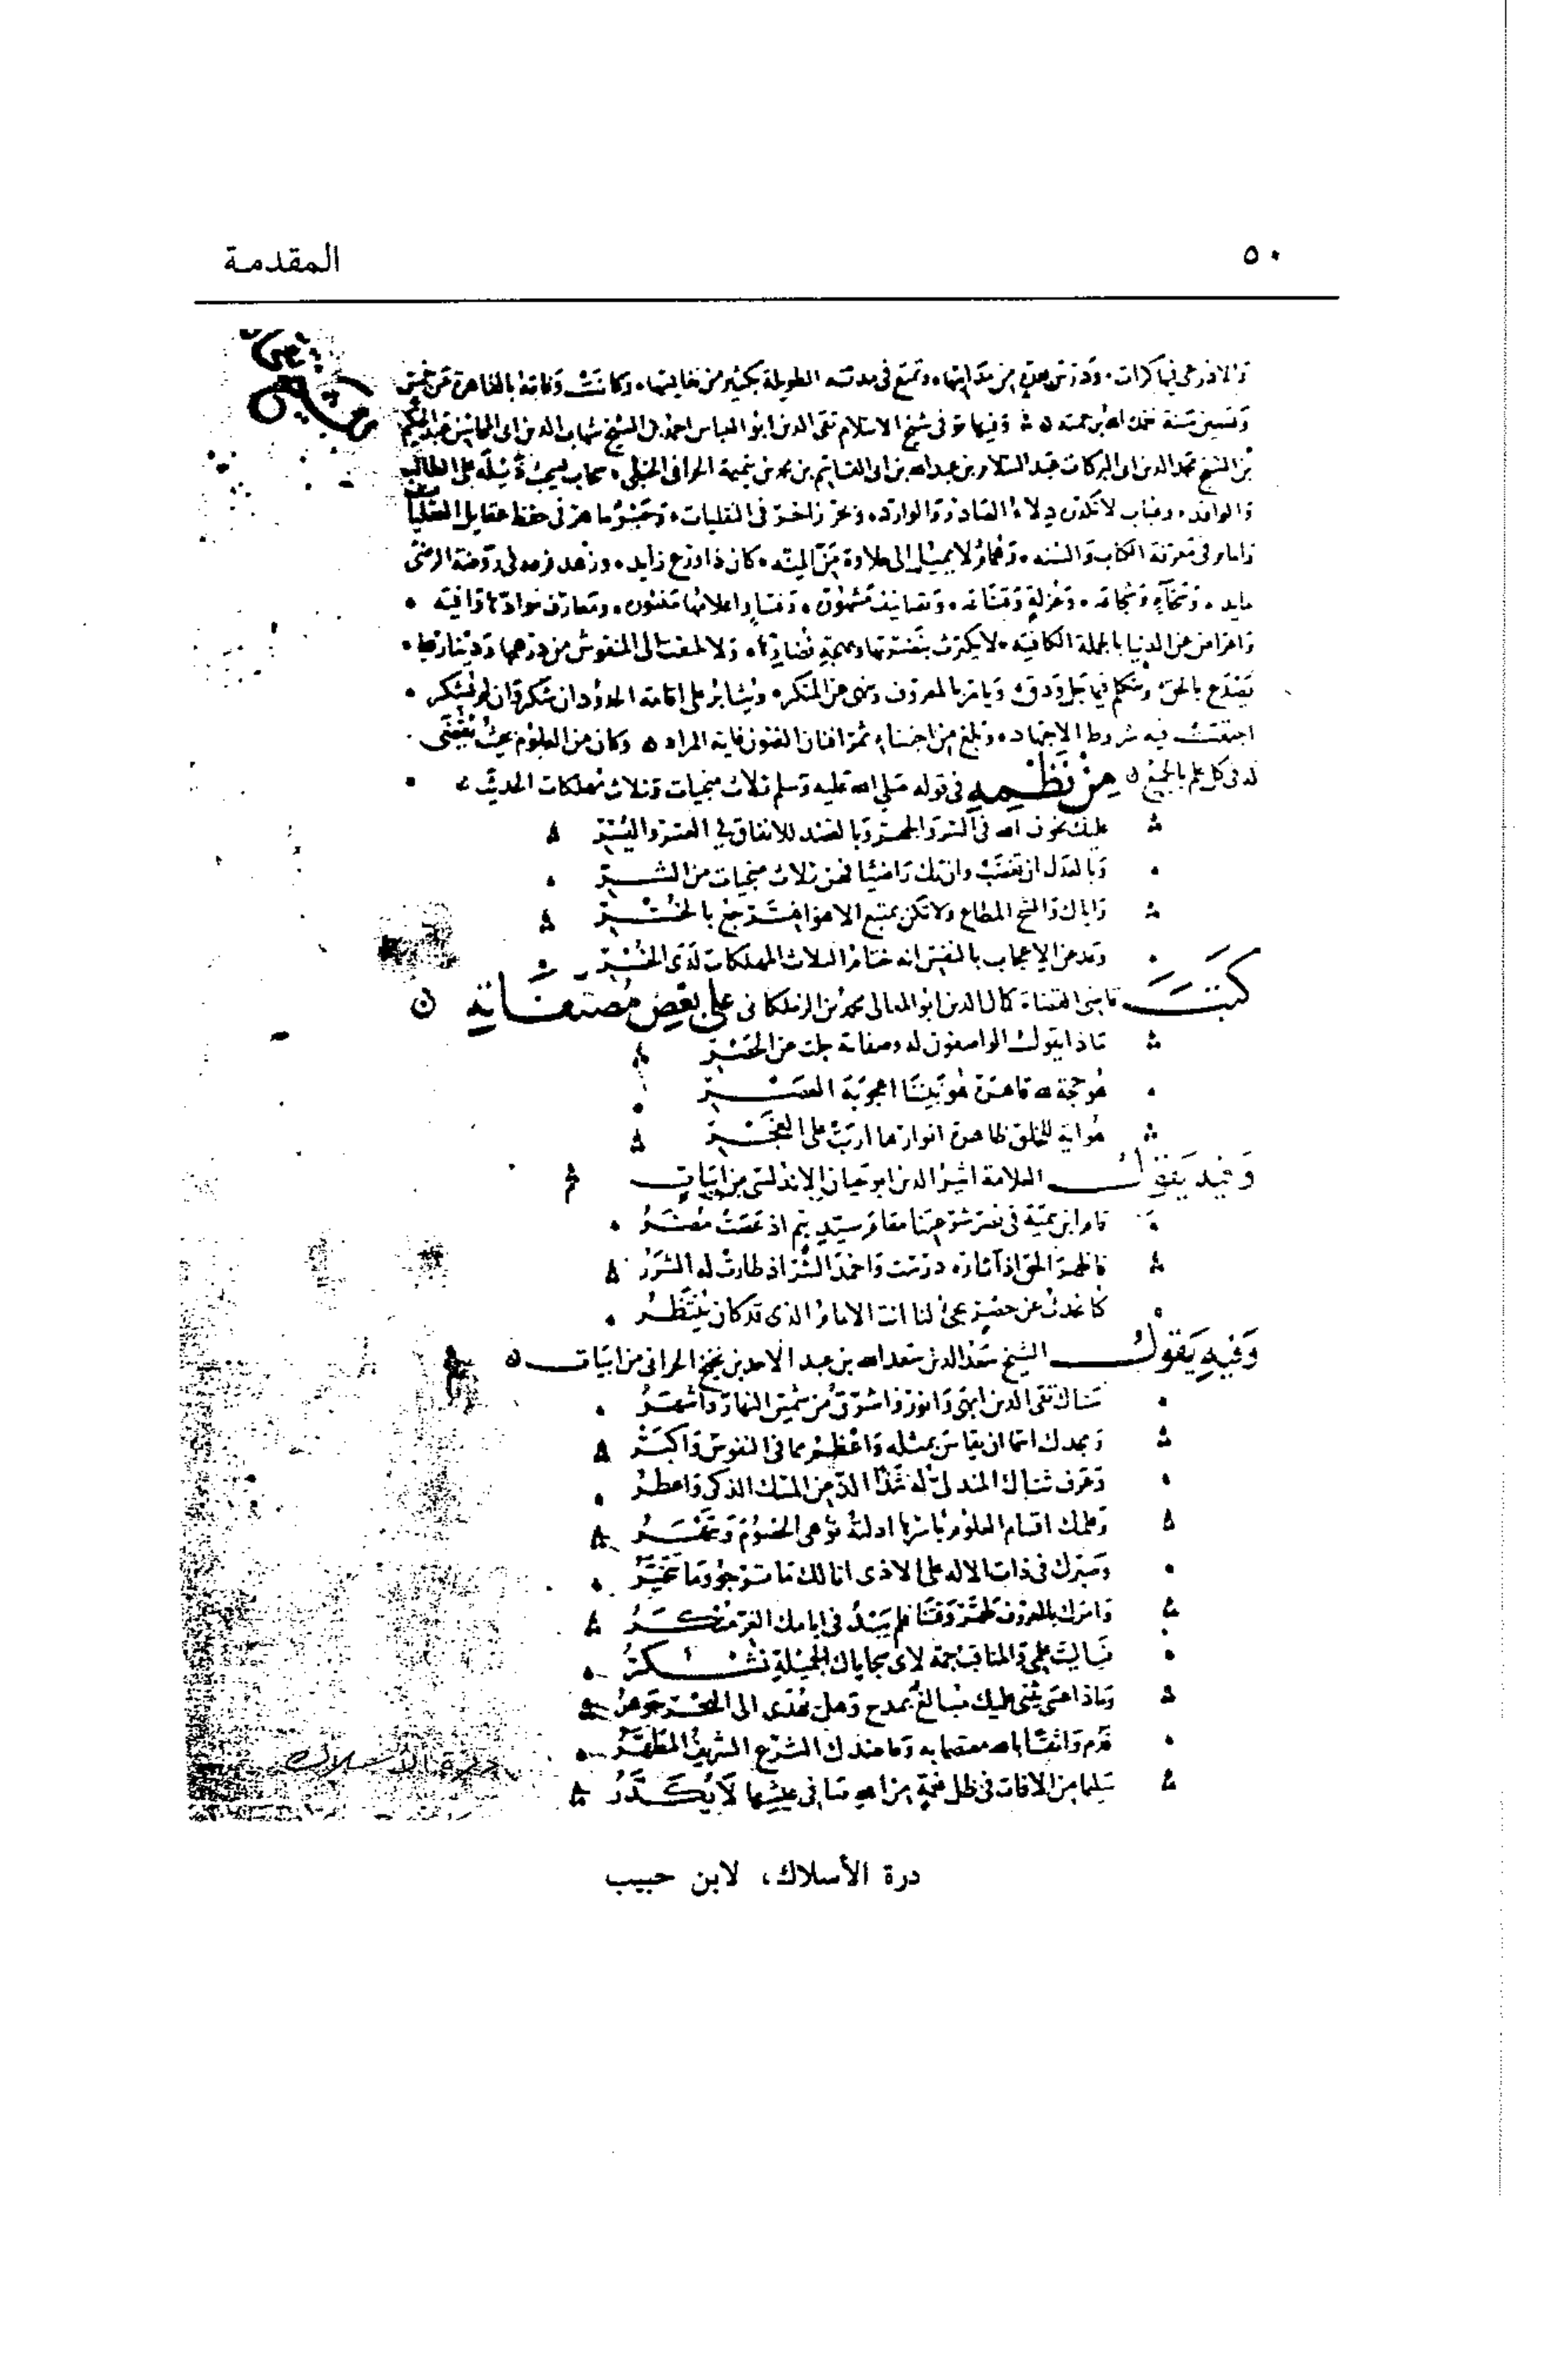 ٥٠
المقدمة
وكانت وفاته بالقاهرة عن خمس
وتسعين سنة وفيها توفى شيخ الاسلام تقى الدين ابو العباس احمد بن الشيخ شهاب الدين ابى المحاسن عبد الحليم
بن الشيخ مجد الدين ابى البركات عبد السلام بن عبد الله بن ابى القاسم بن محمد بن تيمية الحرانى الحنبلى سحاب على الطالب
والوافد وعباب لا تكدره دلاء الصادر والوارد وبحر زاخر فى النقليات وحبر ماهر فى حفظ عقايل العقليات
وامام فى معرفة الكتاب والسنه لا يميل الى حلاوة من المنه كان ذا ورع زايد وزهد فرعه فى روضة الرضى
مايد وسخآء وشجاعه وعزلة وقناعه وتصانيف مشهوره وفتاو اعلامها
واعراض عن الدنيا بالجملة الكافيه لا يكترث ولا يلتفت الى المنقوش من درهمها ودينارها
يصدع بالحق ويتكلم فيما جل ودق ويامر بالمعروف وينهى عن المنكر ويثابر على اقامة الحدود ان شكر وان لم يشكر
اجتمعت فيه شروط الاجتهاد وبلغ من اجتناء ثمر افنان الفنون غاية المراد وكان من العلوم بحيث يقضى
له فى كل علم بالجميع من نظمه فى قوله صلى الله عليه وسلم ثلاث منجيات وثلاث مهلكات الحديث
عليك بخوف الله فى السر والجهر وبالقصد للانفاق فى العسر واليسر
وبالعدل ان تغضب وان تك راضيا فهن ثلاث منجيات من الشر
واياك والشح المطاع ولا تكن بمتبع الاهوا فترجع بالخسر
وعد عن الاعجاب بالنفس انه ختام الثلاث المهلكات لدى الحشر
كتب قاضى القضاة كمال الدين ابو المعالى محمد بن الزملكانى على بعض مصنفاته
ماذا يقول الواصفون له وصفاته جلت عن الحصر
هو حجة لله قاهرة هو بيننا اعجوبة العصر
هو اية للخلق ظاهرة انوارها اربت على الفجر
وفيه يقول العلامة اثير الدين ابو حيان الاندلسى من ابيات
قام ابن تيمية فى نصر شرعتنا مقام سيد تيم اذ عصت مضر
فاظهر الحق اذ آثاره درست واخمد الشر اذ طارت له الشرر
كنا نحدث عن حبر يجئ لنا انت الامام الذى قد كان ينتظر
وفيه يقول الشيخ سعد الدين سعد الله بن عبد الاحد بن نجيح الحرانى من ابيات
سناك تقى الدين ابهى وانور واشرق من شمس النهار واشهر
ومجدك اسما ان يقاس بمثله واعظم مما فى النفوس واكبر
وعرف ثناك المندلى له شذا الذ من المسك الذكى واعطر
وعلمك اقسام العلوم باسرها ادلته توهى الخصوم وتقهر
وصبرك فى ذات الاله على الاذى انالك ما ترجو وما تتخير
وامرك بالمعروف طهر وقتنا فلم يبد فى ايامك الغر منكر
فياليت علمى والمناقب جمة لاى سجاياك الجميلة نشكر
وماذا عسى يثنى عليك مبالغ بمدح وهل يهدى الى البحر جوهر
فدم واثقا بالله معتصما به وعاضدك الشرع الشريف المطهر
سليما من الافات فى ظل نعمة من الله صافى عيشها لا يكدر
درة الاسلاك
درة الأسلاك، لابن حبيب